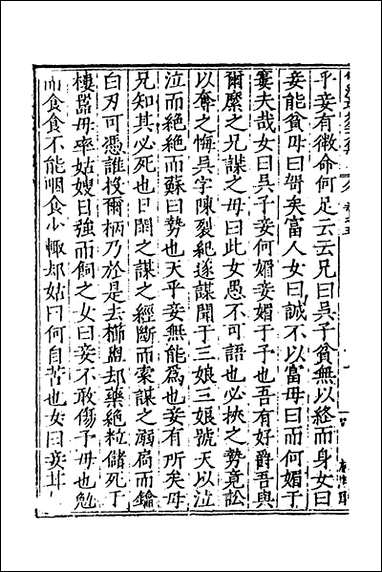 乎妾有徴命何足云云兄曰吳子貧無以終而身女曰
妾能貧毋曰哿矣富人女曰誠不以富毋曰而何媚于
窶夫哉女曰吳子妾何媚妾媚于子也吾有好爵吾與
爾縻之兄謀之毋曰此女愚不可語也必挾之勢竟訟
以奪之悔吳字陳裂絶遂謀聞于三娘三娘號天以泣
泣而絶絶而蘇曰勢也天乎妾無能爲也妾有所矣毋
兄知其必死也日閑之謀之經斷而索謀之溺扃而鑰
白刃可憑誰投爾柄乃於是去櫛盥却藥絶粒儲死于
樓嚣毋率姑嫂日強而飼之女曰妾不敢傷予毋也勉
而食食不能咽食少輙却姑曰何自苦也女曰妾耳